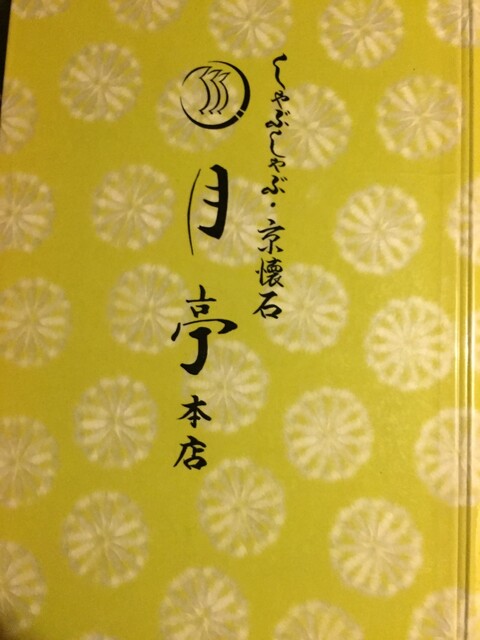 しゃぶしゃぶ・京懐石
月亭本店